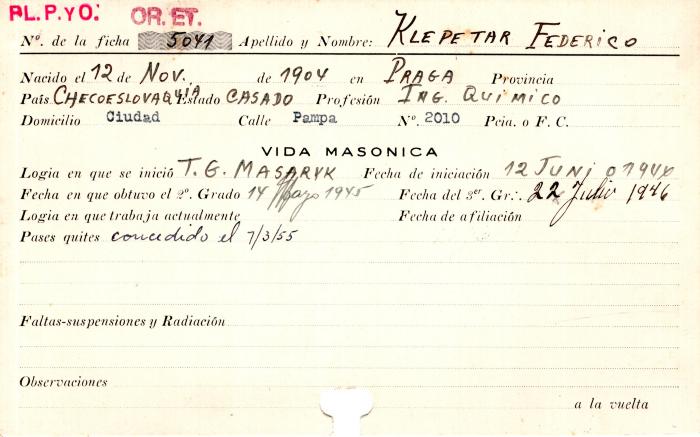 PL.P.YO. OR.ET.
Nº. de la ficha 5041 Apellido y Nombre: KLEPETAR FEDERICO
Nacido el 12 de Nov. de 1904 en PRAGA Provincia
País CHECOESLOVAQUIA Estado CASADO Profesión ING. QUIMICO
Domicilio Ciudad Calle Pampa Nº. 2010 Pcia. o F. C.
VIDA MASONICA
Logia en que se inició T. G. MASARYK Fecha de iniciación 12 JUNIO 1944
Fecha en que obtuvo el 2º. Grado 14 Mayo 1945 Fecha del 3er. Gr∴. 22 Julio 1946
Logia en que trabaja actualmente Fecha de afiliación
Pases quites concedido el 7/3/55
Faltas-suspensiones y Radiación
Observaciones
a la vuelta